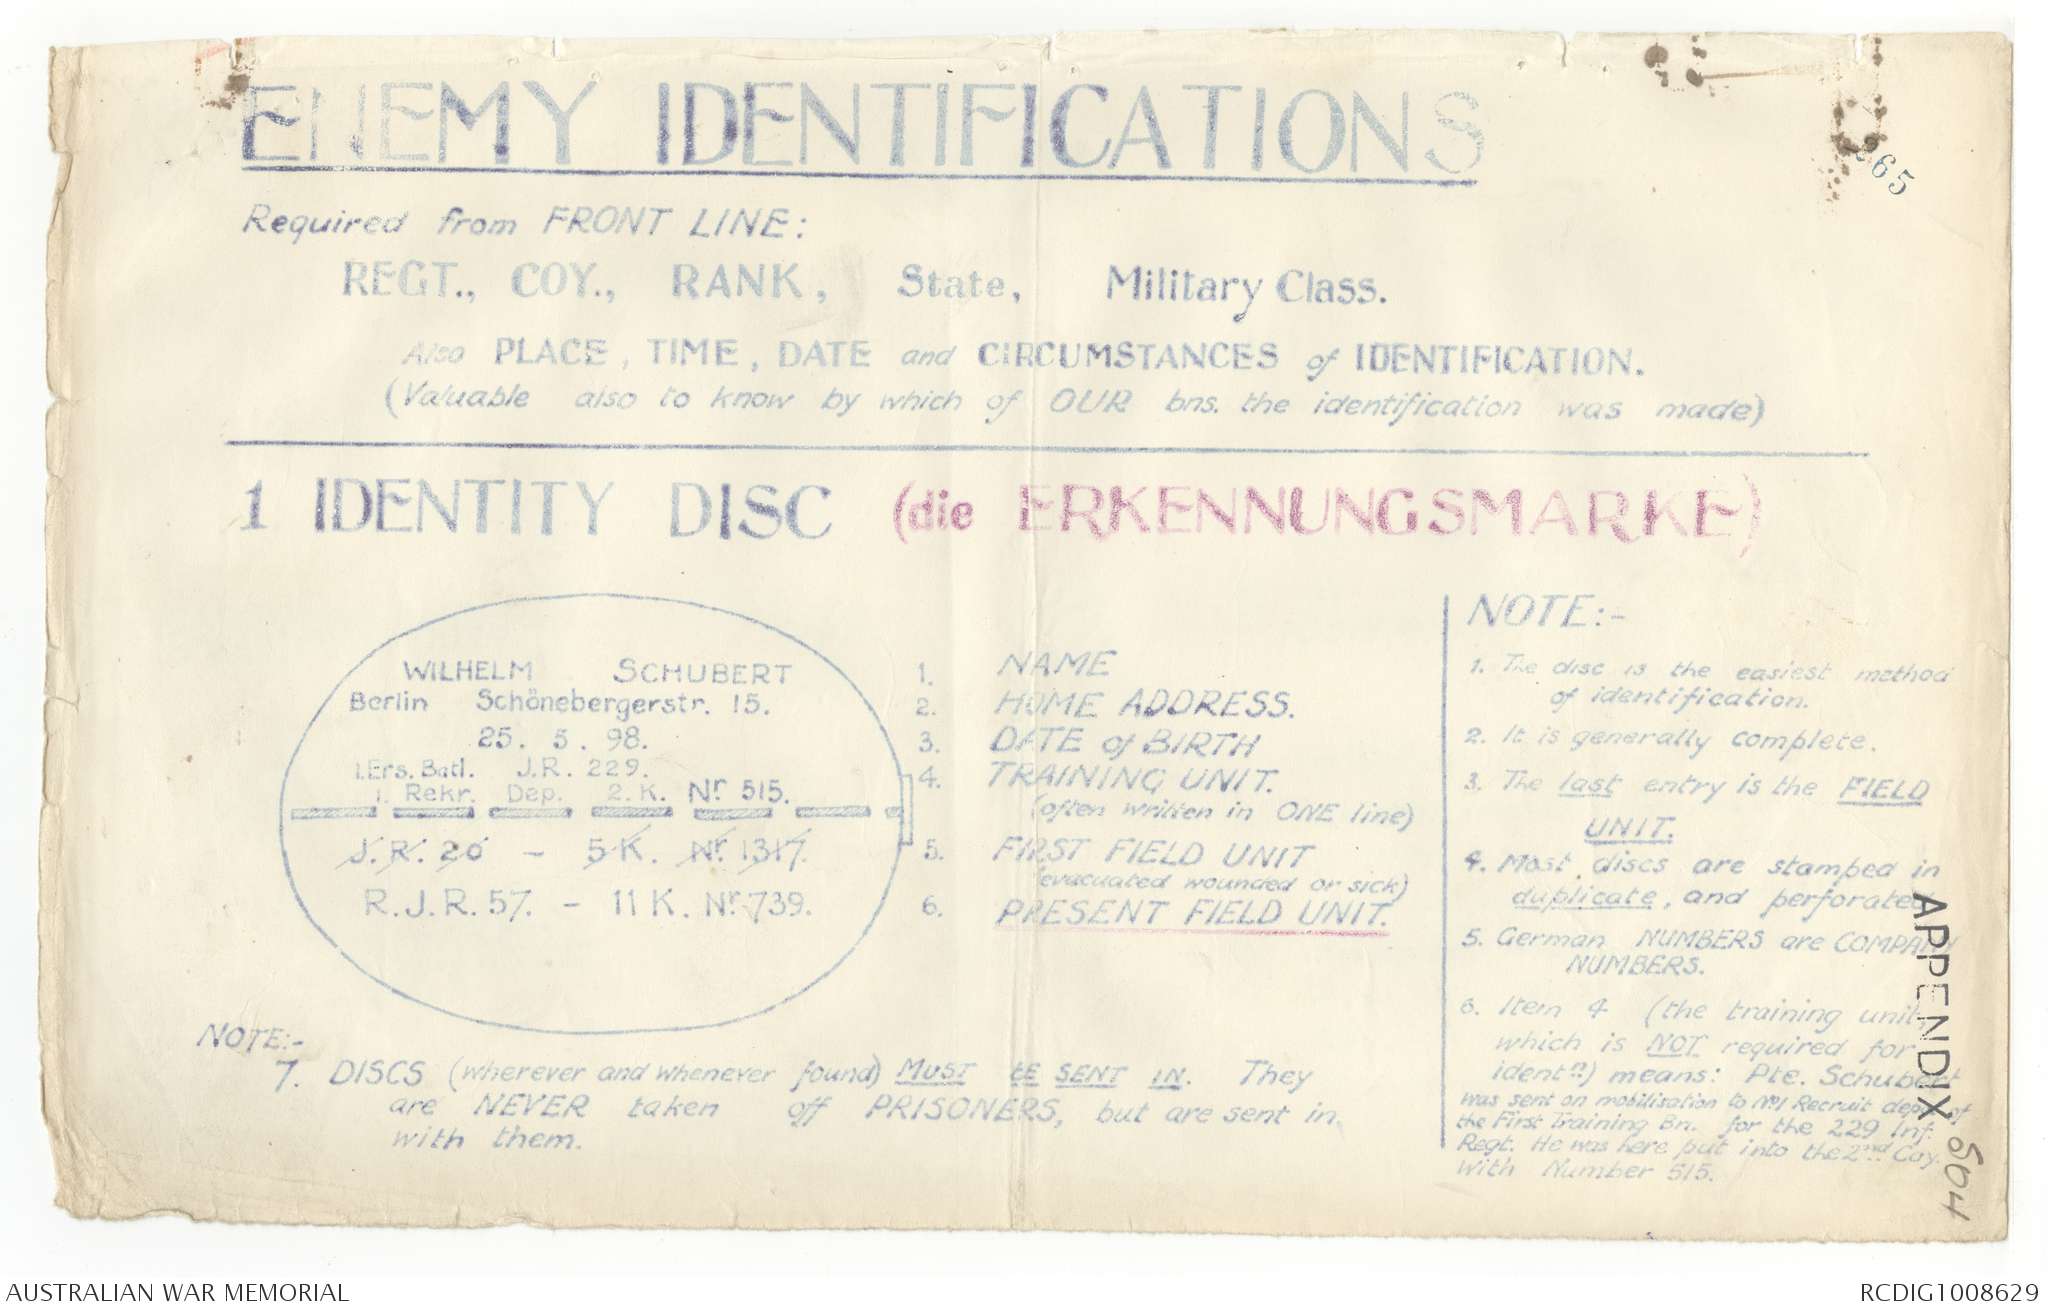 ENEMY IDENTIFICATIONS
365
Required from FRONT LINE:
REGT., COY., RANK, State, Military Class.
Also PLACE, TIME, DATE and CIRCUMSTANCES of IDENTIFICATION.
(Valuable also to know by which of OUR bns. the identification was made)
1 IDENTITY DISC (die ERKENNUNGSMARKE)
WILHELM SCHUBERT
Berlin Schönebergerstr. 15.
25. 5. 98.
I.Ers. Batl. J.R. 229.
1. Rekr. Dep. 2. K. Nr 515.
J. R. 20 - 5 K. Nr 1317.
R. J. R. 57. - 11 K. Nr 739.
1. NAME
2. HOME ADDRESS.
3. DATE of BIRTH
4. TRAINING UNIT.
(often written in ONE line)
5. FIRST FIELD UNIT
(evacuated wounded or sick)
6. PRESENT FIELD UNIT.
NOTE:-
1. The disc is the easiest method
of identification.
2. It is generally complete.
3. The last entry is the FIELD
UNIT.
4. Most discs are stamped in
duplicate, and perforated
5. German NUMBERS are COMPANY
NUMBERS.
6. Item 4 (the training unit,
which is NOT required for
identn) means: Pte. Schubert
was sent on mobilisation to No1 Recruit depot of
the First Training Bn. for the 229 Inf.
Regt. He was here put into the 2nd Coy.
with Number 515.
NOTE:-
7. DISCS (wherever and whenever found) MUST BE SENT IN. They
are NEVER taken off PRISONERS, but are sent in
with them.
APPENDIX S04
AUSTRALIAN WAR MEMORIAL
RCDIG1008629